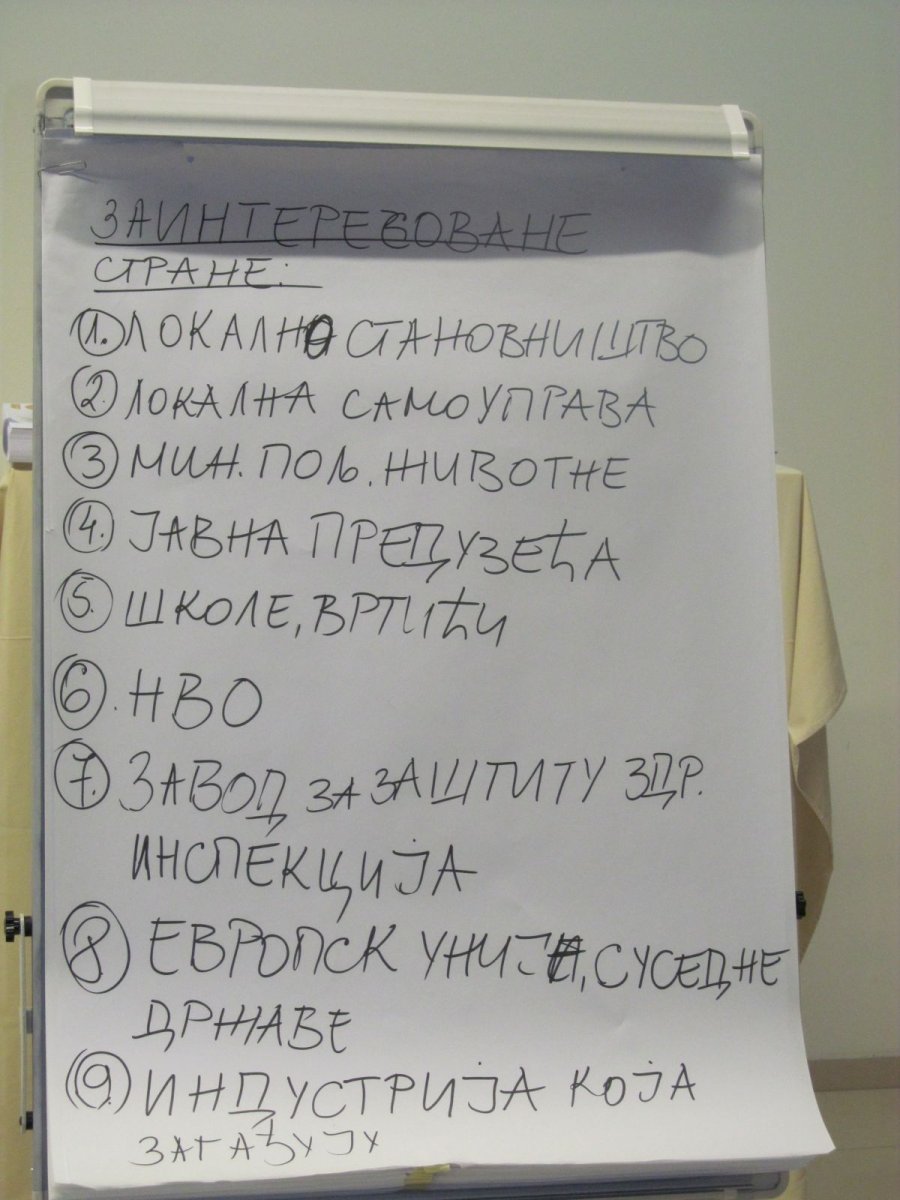 ЗАИНТЕРЕСОВАНЕ
СТРАНЕ:
1. ЛОКАЛНО СТАНОВНИШТВО
2. ЛОКАЛНА САМОУПРАВА
3 МИН. ПОЉ. ЖИВОТНЕ
4. ЈАВНА ПРЕДУЗЕЋА
5. ШКОЛЕ, ВРТИЋИ
6. НВО
7. ЗАВОД ЗА ЗАШТИТУ ЗДР.
ИНСПЕКЦИЈА
8 ЕВРОПСК УНИЈА, СУСЕДНЕ
ДРЖАВЕ
9. ИНДУСТРИЈА КОЈА
ЗАГАЂУЈУ